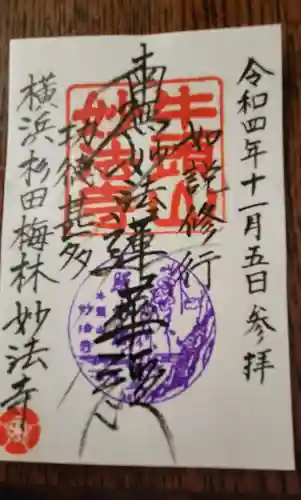 令和四年十一月五日参拝
如説修行
南無妙法蓮華経
功徳甚多
横浜杉田梅林妙法寺
牛頭山
妙法寺